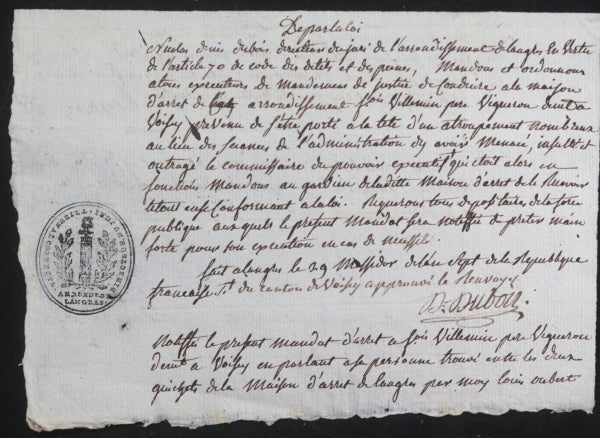 De par la loi
Nicolas denis dubois directeur du juri de l'arrondissement de langres En Vertu
de l'article 70 de code des delits et des peines, Mandons et ordonnons
a tous executeurs de mandemens de justice de Conduire a la maison
d'arret de arrondissement fois Villemin pere Vigneron demt a
Voisey prevenu de s'etre porté a la tete d'un atroupement nombreux
au lieu des seances de l'administration d'y avoir Menacé, insulté et
outragé le commissaire du pouvoir executif qui etoit alors en
fonctions Mandons au gardien de ladite Maison d'arret de le Recevoir
le tout en se Conformant a la loi. Requerons tous depositaires de la force
publique auxquels le present Mandat sera notiffié de preter main
forte pour son execution en cas de necessité
fait a langres le 29 Messidor de l'an Sept de la Republique
francaise. du canton de Voisey approuvé le Renvoy
Ds. Dubois
ARRONDT. DE
LANGRES
Notiffié le present mandat d'arret a fois Villemin pere Vigneron
demt. a Voisey en parlant a sa personne trouvé entre les deux
guichets de la Maison d'arret de langres par moy louis oubert